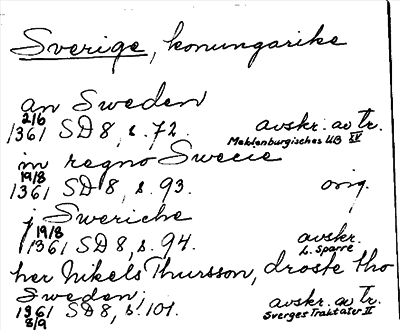 Sverige, konungarike
an Sweden
2/6
1361 SD 8, s. 72. avskr. av tr.
Meklenburgisches UB XV
in regno Swecie
19/8
1361 SD 8, s. 93. orig.
j Sweriche
19/8
1361 SD 8, s. 94. avskr.
L. Sparre
her Nikels Thursson, droste tho
Sweden;
1361 SD 8, s. 101. avskr. av tr.
8/9 Sverges Traktater II